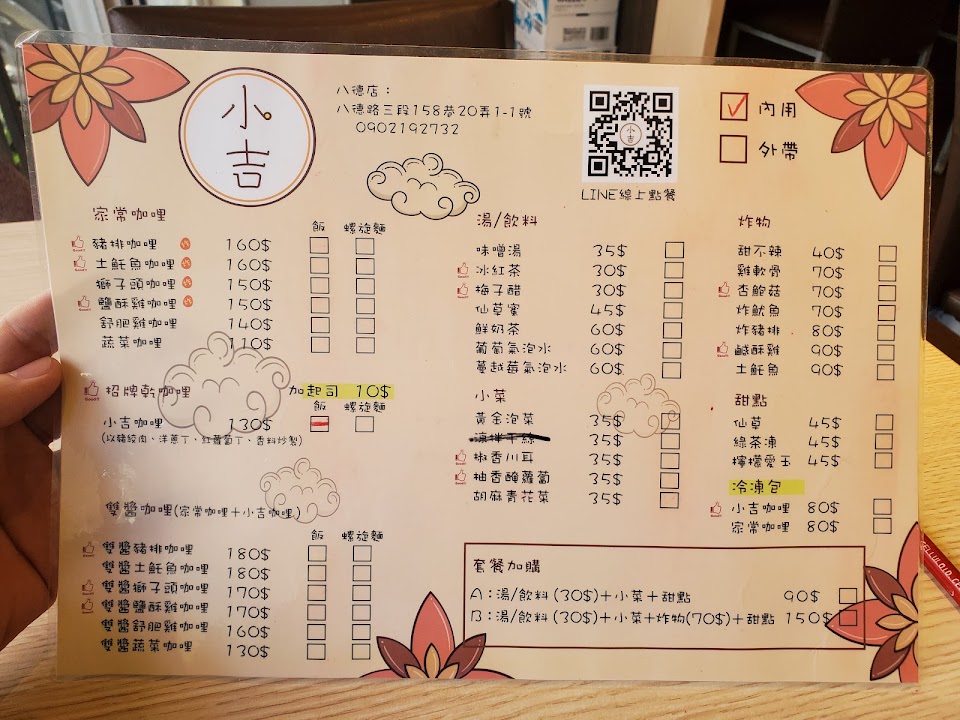 小吉
八德店：
八德路三段158巷20弄1-1號
0902192732
LINE線上點餐
內用
外帶
家常咖哩 飯 螺旋麵
豬排咖哩 160$
土魠魚咖哩 160$
獅子頭咖哩 150$
鹽酥雞咖哩 150$
舒肥雞咖哩 140$
蔬菜咖哩 110$
招牌乾咖哩 加起司 10$
飯 螺旋麵
小吉咖哩 130$
(以豬絞肉、洋蔥丁、紅蘿蔔丁、香料炒製)
雙醬咖哩(家常咖哩+小吉咖哩)
飯 螺旋麵
雙醬豬排咖哩 180$
雙醬土魠魚咖哩 180$
雙醬獅子頭咖哩 170$
雙醬鹽酥雞咖哩 170$
雙醬舒肥雞咖哩 160$
雙醬蔬菜咖哩 130$
湯/飲料
味噌湯 35$
冰紅茶 30$
梅子醋 30$
仙草蜜 45$
鮮奶茶 60$
葡萄氣泡水 60$
蔓越莓氣泡水 60$
小菜
黃金泡菜 35$
涼拌干絲 35$
椒香川耳 35$
柚香醃蘿蔔 35$
胡麻青花菜 35$
炸物
甜不辣 40$
雞軟骨 70$
杏鮑菇 70$
炸魷魚 70$
炸豬排 80$
鹹酥雞 90$
土魠魚 90$
甜點
仙草 45$
綠茶凍 45$
檸檬愛玉 45$
冷凍包
小吉咖哩 80$
家常咖哩 80$
套餐加購
A：湯/飲料(30$)+小菜+甜點 90$
B：湯/飲料(30$)+小菜+炸物(70$)+甜點 150$